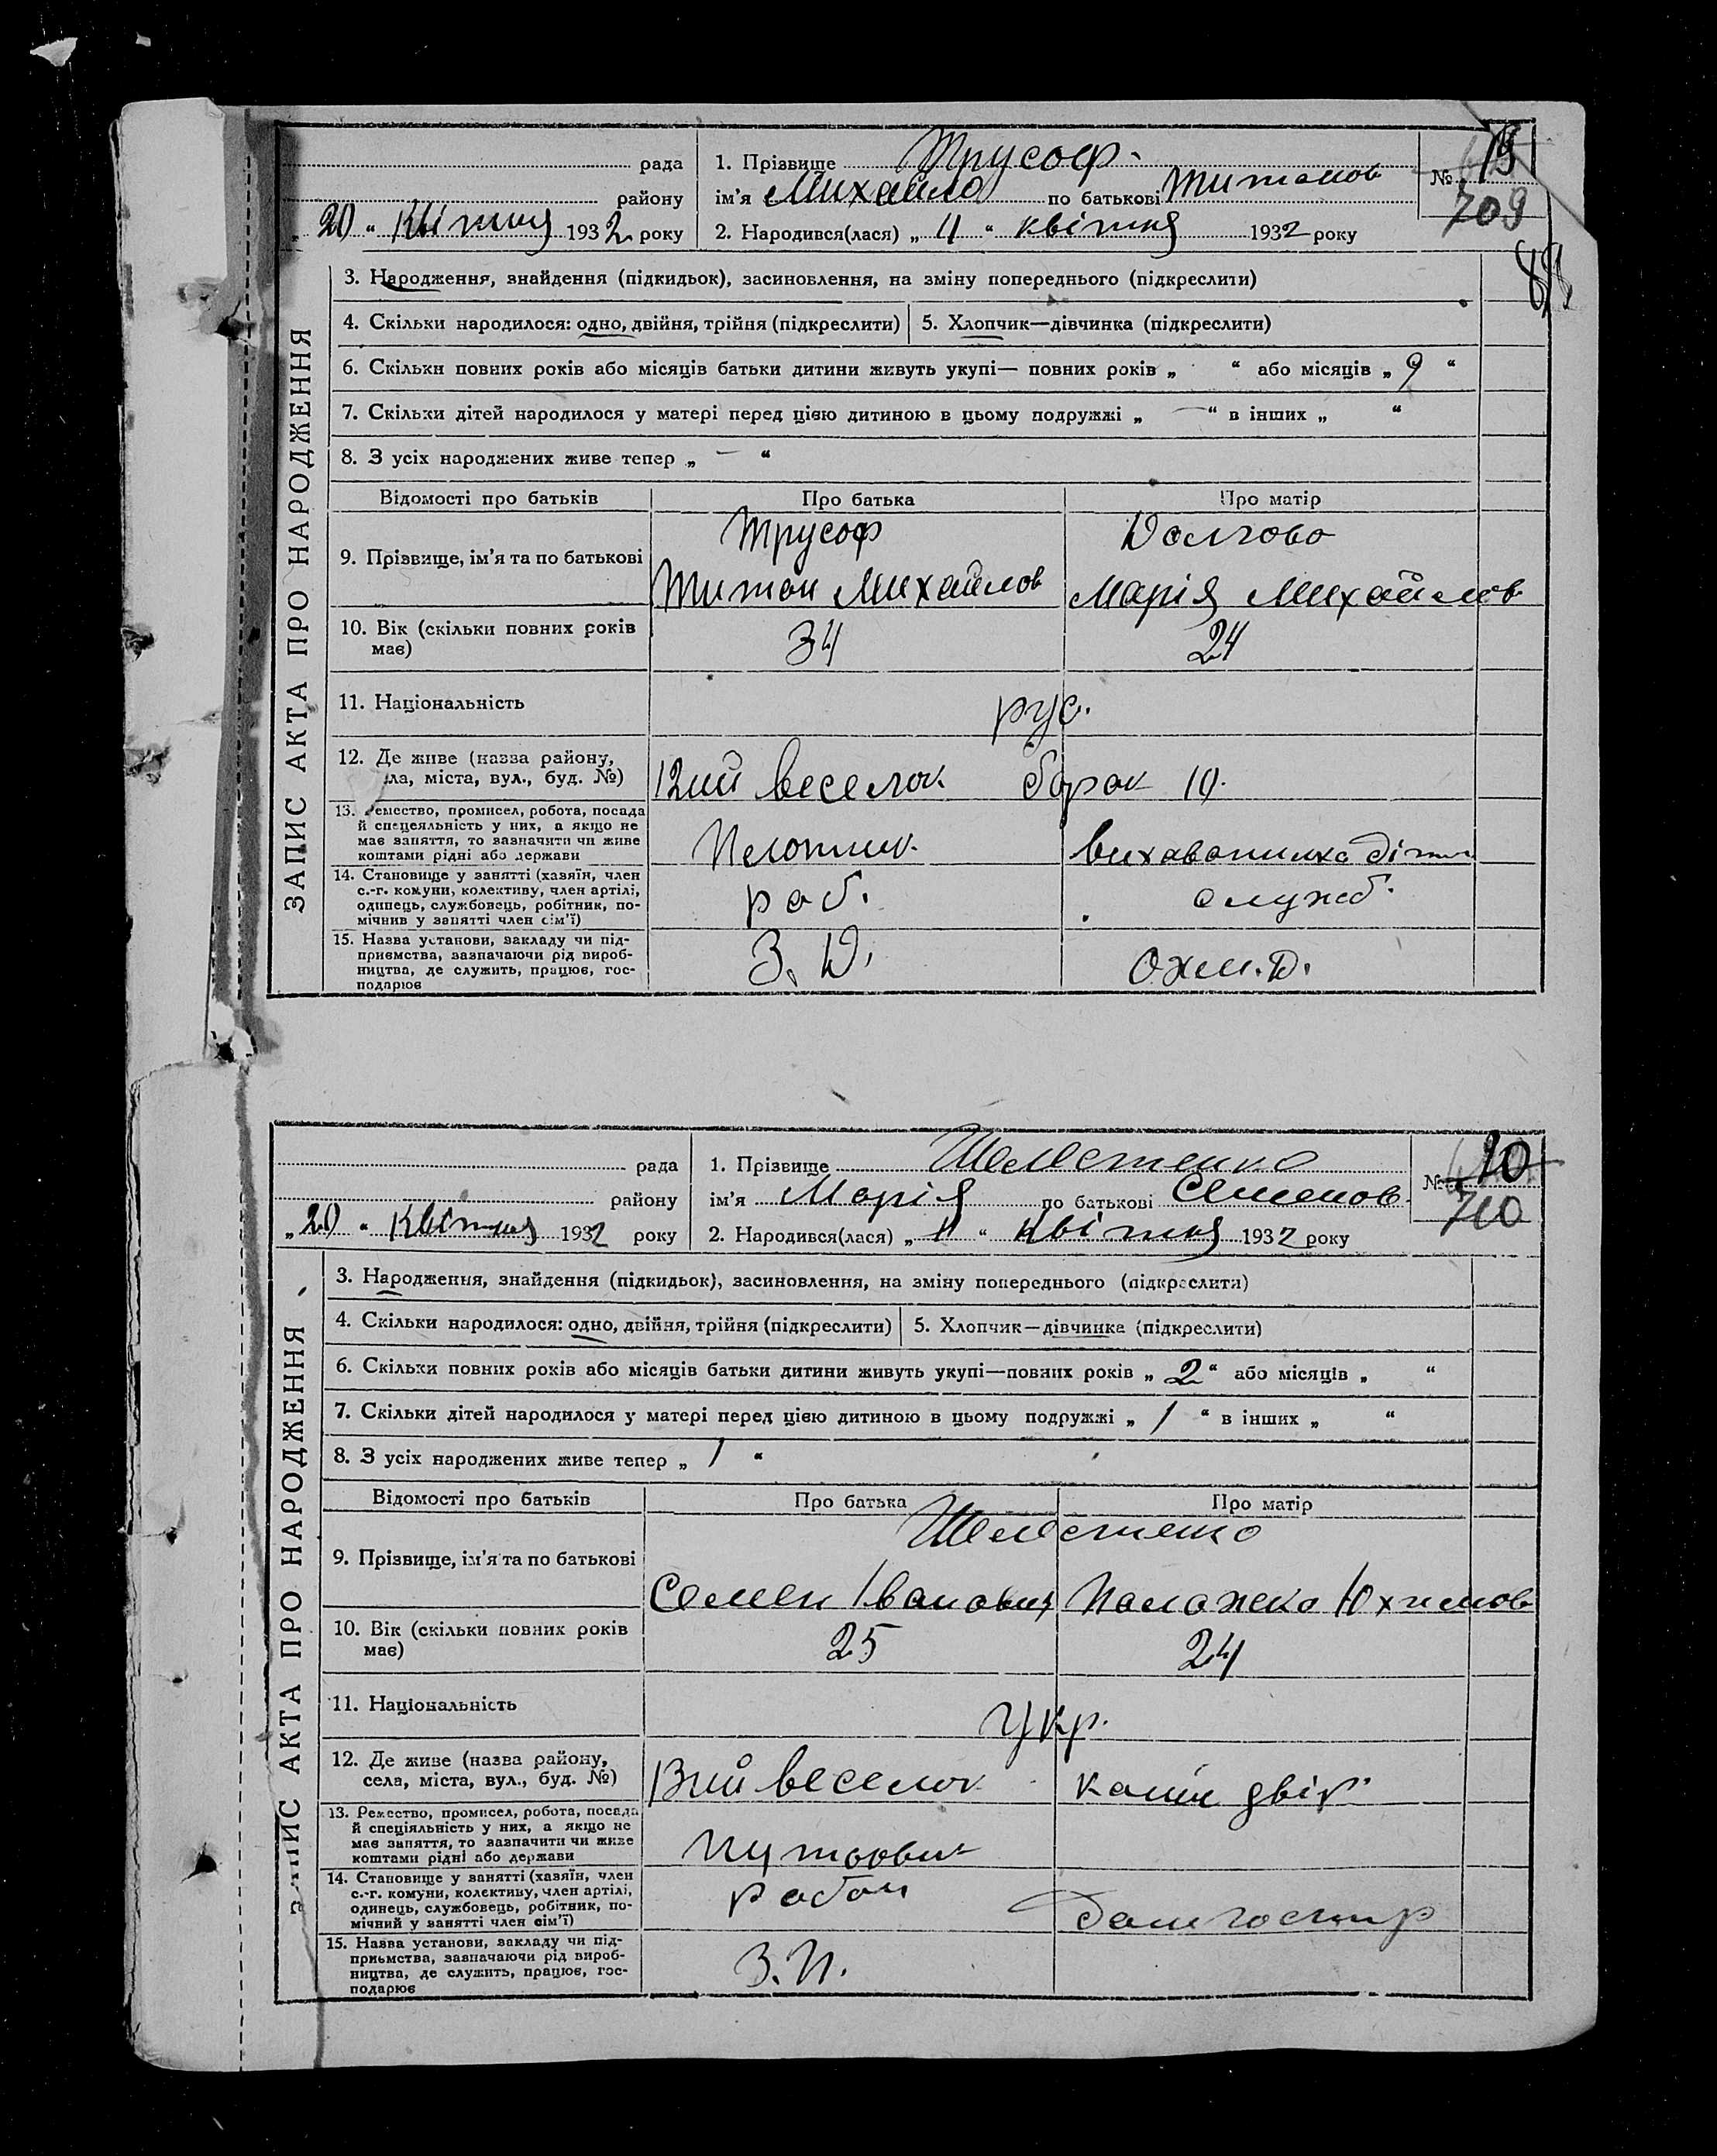 рада
району
„20“ Квітня 1932 року
1. Прізвище Трусоф.
ім'я Михайло по батькові Титонов
2. Народився(лася) „11“ квітня 1932 року
№ 19
709
ЗАПИС АКТА ПРО НАРОДЖЕННЯ
3. Народження, знайдення (підкидьок), засиновлення, на зміну попереднього (підкреслити)
4. Скільки народилося: одно, двійня, трійня (підкреслити) 5. Хлопчик—дівчинка (підкреслити)
6. Скільки повних років або місяців батьки дитини живуть укупі— повних років „ “ або місяців „ 9 “
7. Скільки дітей народилося у матері перед цією дитиною в цьому подружжі „ — “ в інших „ “
8. З усіх народжених живе тепер „ — “
Відомості про батьків Про батька Про матір
9. Прізвище, ім'я та по батькові
Трусоф Долгово
Титон Михайлов Марія Михайлов
10. Вік (скільки повних років
має)
34 24
11. Національність рус.
12. Де живе (назва району,
ла, міста, вул., буд. №)
12ий веселок барак 19.
13. Ремество, промисел, робота, посада
й спецеяльність у них, а якщо не
має заняття, то зазначити чи живе
коштами рідні або держави
Плотник.
14. Становище у занятті (хазяїн, член
с.-г. комуни, колективу, член артілі,
одинець, службовець, робітник, по-
мічнив у занятті член сім'ї)
роб. служб.
15. Назва установи, закладу чи під-
приємства, зазначаючи рід вироб-
ництва, де служить, працює, гос-
подарює
З. Д. Охм. Д.
рада
району
„20“ Квітня 1932 року
1. Прізвище Шелестенко
ім'я Марія по батькові Семенов.
2. Народився(лася) „11“ Квітня 1932 року
№ 10
710
ЗАПИС АКТА ПРО НАРОДЖЕННЯ
3. Народження, знайдення (підкидьок), засиновлення, на зміну попереднього (підкреслити)
4. Скільки народилося: одно, двійня, трійня (підкреслити) 5. Хлопчик—дівчинка (підкреслити)
6. Скільки повних років або місяців батьки дитини живуть укупі—повних років „ 2 “ або місяців „ “
7. Скільки дітей народилося у матері перед цією дитиною в цьому подружжі „ 1 “ в інших „ “
8. З усіх народжених живе тепер „ 1 “
Відомості про батьків Про батька Про матір
9. Прізвище, ім'я та по батькові
Шелестенко
Семен Іванович Палажка Юхимов
10. Вік (скільки повних років
має)
25 24
11. Національність Укр.
12. Де живе (назва району,
села, міста, вул., буд. №)
13ий веселок кайн двір
13. Ремество, промисел, робота, посада
й спеціяльність у них, а якщо не
має заняття, то зазначити чи живе
коштами рідні або держави
14. Становище у занятті (хазяїн, член
с.-г. комуни, колективу, член артілі,
одинець, службовець, робітник, по-
мічний у занятті член сім'ї)
робоч домгоспод
15. Назва установи, закладу чи під-
приємства, зазначаючи рід вироб-
ництва, де служить, працює, гос-
подарює
З. П.